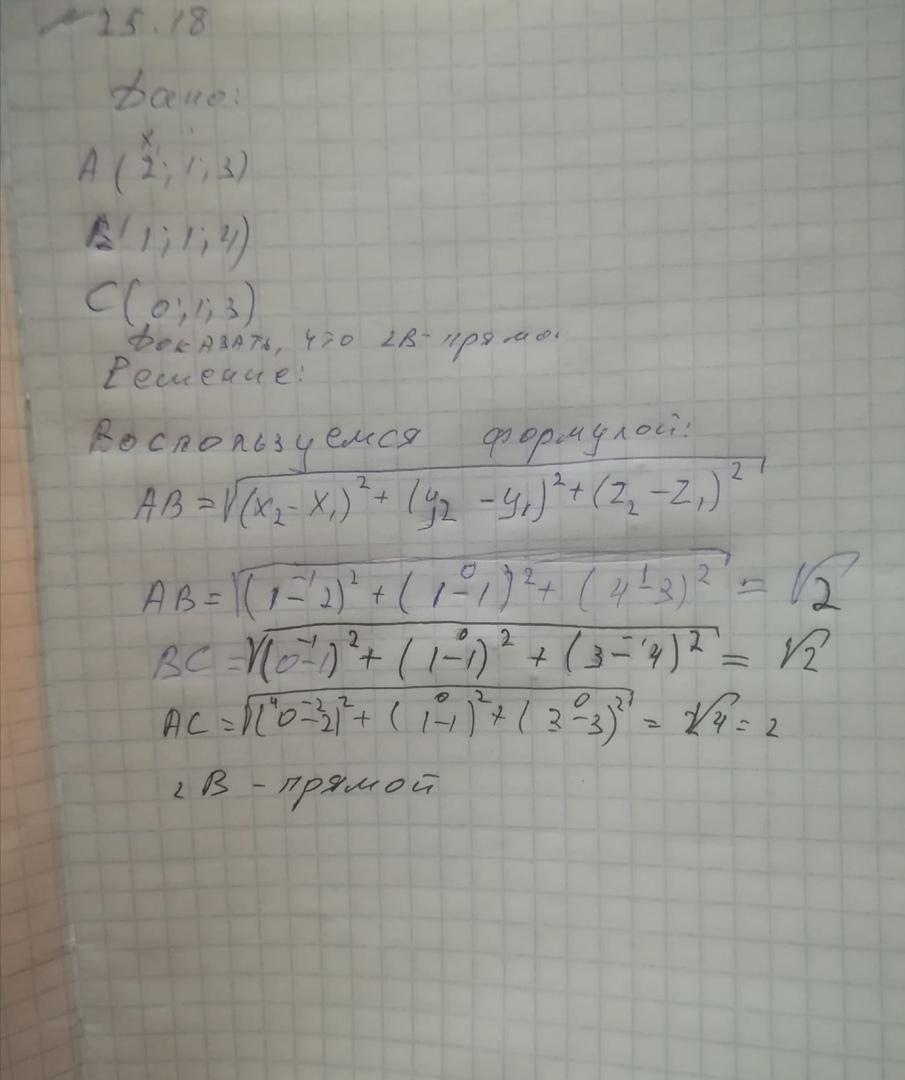 25.18
Дано:
x
A (2; 1; 3)
B( 1; 1; 4)
C( 0; 1; 3)
Доказать, что ∠B-прямо.
Решение:
Воспользуемся формулой:
AB = √((x₂ - x₁)² + (y₂ - y₁)² + (z₂ - z₁)²)
-1 0 1
AB = √((1-2)² + (1-1)² + (4-3)²) = √2
-1 0 -1
BC = √((0-1)² + (1-1)² + (3-4)²) = √2
4 -2 0 0
AC = √((0-2)² + (1-1)² + (3-3)²) = √4 = 2
∠B - прямой